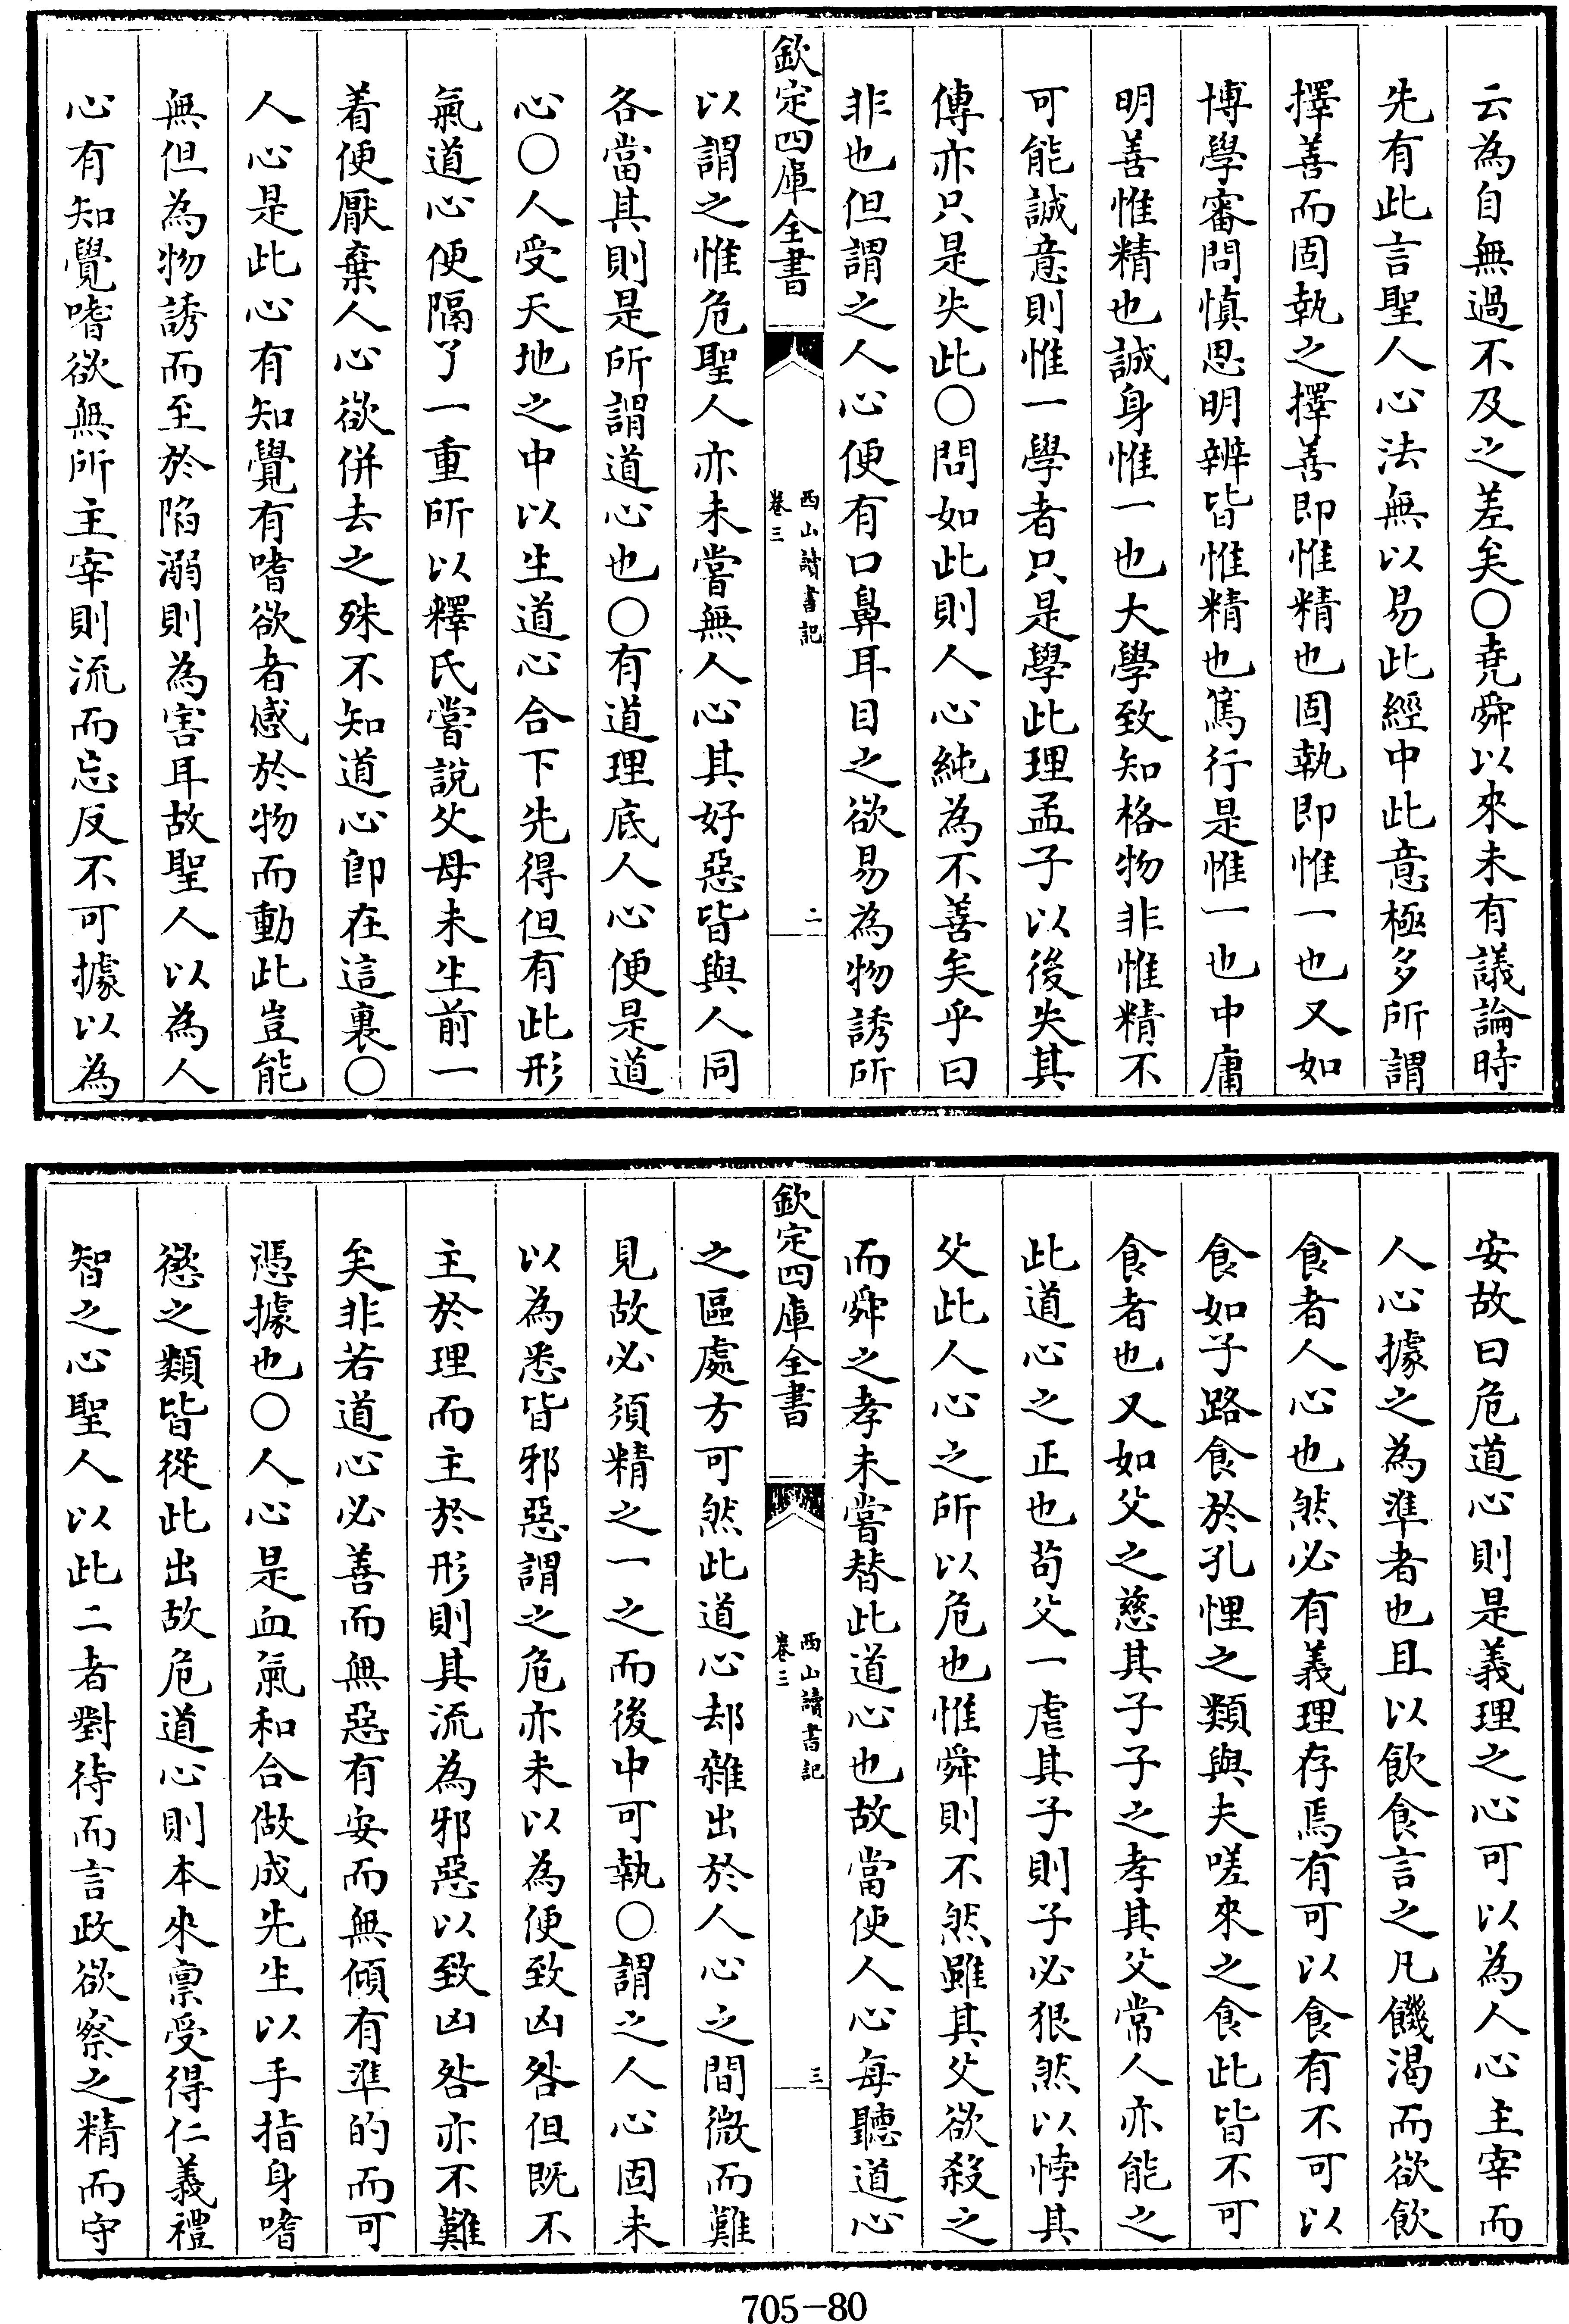 云為自無過不及之差矣○堯舜以來未有議論時
先有此言聖人心法無以易此經中此意極多所謂
擇善而固執之擇善即惟精也固執即惟一也又如
博學審問慎思明辨皆惟精也篤行是惟一也中庸
明善惟精也誠身惟一也大學致知格物非惟精不
可能誠意則惟一學者只是學此理孟子以後失其
傳亦只是失此○問如此則人心純為不善矣乎曰
非也但謂之人心便有口鼻耳目之欲易為物誘所
欽定四庫全書
西山讀書記
卷三
二
以謂之惟危聖人亦未嘗無人心其好惡皆與人同
各當其則是所謂道心也○有道理底人心便是道
心○人受天地之中以生道心合下先得但有此形
氣道心便隔了一重所以釋氏嘗說父母未生前一
着便厭棄人心欲併去之殊不知道心即在這裏○
人心是此心有知覺有嗜欲者感於物而動此豈能
無但為物誘而至於陷溺則為害耳故聖人以為人
心有知覺嗜欲無所主宰則流而忘反不可據以為
安故曰危道心則是義理之心可以為人心主宰而
人心據之為準者也且以飲食言之凡饑渴而欲飲
食者人心也然必有義理存焉有可以食有不可以
食如子路食於孔悝之類與夫嗟來之食此皆不可
食者也又如父之慈其子子之孝其父常人亦能之
此道心之正也苟父一虐其子則子必狠然以悖其
父此人心之所以危也惟舜則不然雖其父欲殺之
而舜之孝未嘗替此道心也故當使人心每聽道心
欽定四庫全書
西山讀書記
卷三
三
之區處方可然此道心却雜出於人心之間微而難
見故必須精之一之而後中可執○謂之人心固未
以為悉皆邪惡謂之危亦未以為便致凶咎但既不
主於理而主於形則其流為邪惡以致凶咎亦不難
矣非若道心必善而無惡有安而無傾有準的而可
憑據也○人心是血氣和合做成先生以手指身嗜
慾之類皆從此出故危道心則本來禀受得仁義禮
智之心聖人以此二者對待而言政欲察之精而守
705—80